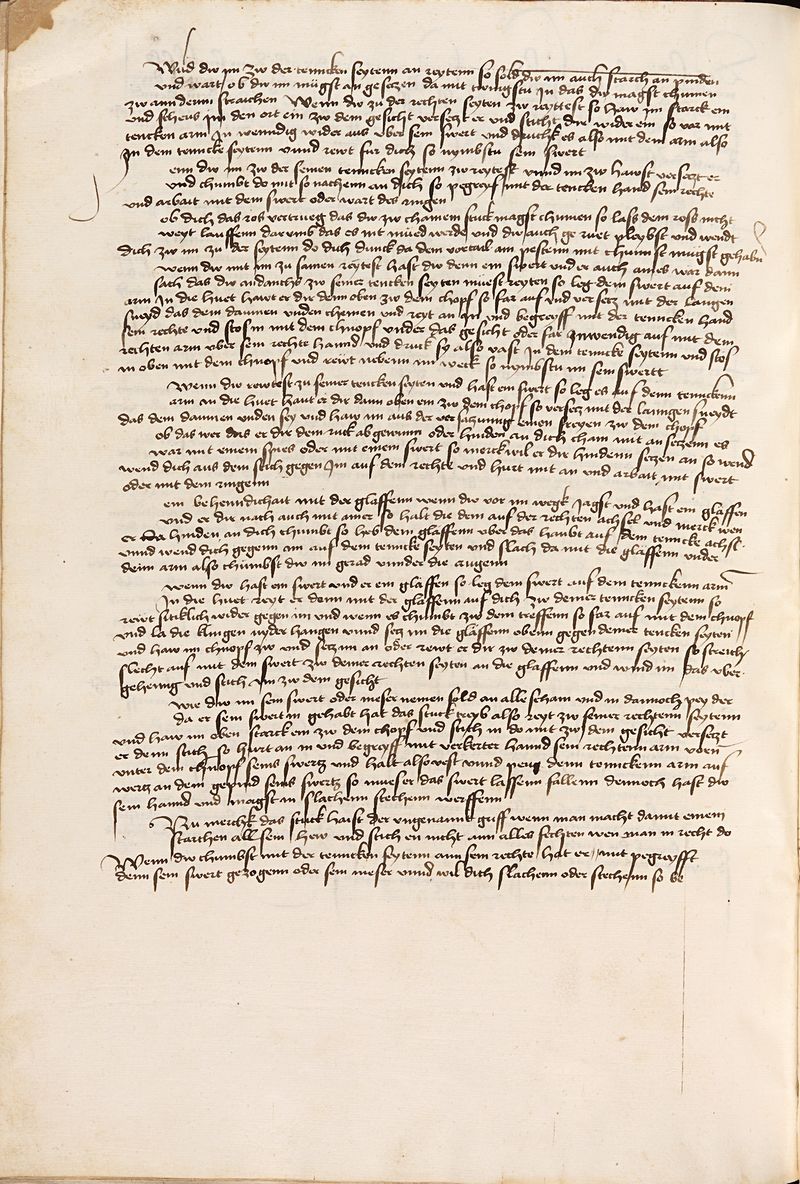 Und dw im zw der tencken seyten an reytenn so sold dw im auch starch an pinden
und wart ob dw im mügst an gesetzen da mit twingstu in das dw magst chumen
zw ann denn strauchen Wenn dw zu der rechten seyten zw reyttest so haw im starck ein
und scheub im den ort ein zw dem gesicht versetzt er und sticht dir wider ein so var mit
tencken arm in wenndig wider aus uber sein swert und druchk es also mit dem arm also
in dem tencke seytenn unnd rewt fur dich so nymbstu sein swert
enn dw im zw der seinen tenncken seytenn zw reytest unnd im zw hawst versetzt er
und chumbt do mit so nachenn an dich so pegreyf mit der tencken hand sein rechte
und arbait mit dem swert oder wart des ringen
ob dich das ros vertrueg das dw zw chainem stuck magst chumen so lass dein ross nicht
weyt lauffenn darumb das es nit mued werde und dw auch geruet pleybst und wendt
dich zw im zu der seytenn do dich dunck da dein vortail am pestenn mit chunst mügst gehabn
wenn dw mit im zu samen reytest hast dw denn ein swert und er auch ains war dann
sach das dw anndichs zw seiner tencken seyten müest reyten so leg dein swert auf dein
arm in die huet hawt er dir denn oben zw dem chopf so far auf und versetz mit der langen
sneyd das dein daumen unden chumen und reyt an in und begreyff mit der tenncken hand
sein rechte und stos im mit dem chnopf under das gesicht oder far inwendig auf mit dem
rechten arm uber sein rechte hannd und druck sy also vast in dein tencke seytenn und stos
in oben mit dem chnopf und rewt nebenn im weck so nymbstu im sein swertt
Wenn dw rewtest zu seiner tencken seyten und hast ein swert so leg es auf denn tencken
arm an die huet haut er dir dann oben ein zw dem chopf so versetz mit der lanngen sneydt
das dein daumen unden sey und haw im aus der versatzunng einen freyen zw dem chopf
ob das wer das er dir dein ruck ab gewunn oder hinden an dich cham mit an setzenn es
war mit einem spies oder mit einem swert so merck wil er dir hindenn setzen an so wend
wend dich aus dem stich gegen im auf dein rechte und hurt mit an und arbait mit swert
oder mit dem ringenn
ein behenndichait mit der glaffenn wenn dw vor im wegk jagst und hast ein glaffen
und er dir nach auch mit ainer so halt die dein auf der rechten achsel und merck wen
er hinden an dich chumbt so heb dein glaffenn uber das haubt auf dein tencke achsl
unnd wend dich gegenn im auf dein tencke seyten und slach da mit die glaffenn under
deim arm also chumbst dw im gerad unnder die augenn
wenn dw hast ein swert und er ein glaffen so leg dein swert auf dein tenckenn arm
in die huet reyt er denn mit der glaffenn auf dich zw deiner tencken seytenn so
rewt sitlich wider gegen im und wenn es chumbt zw dem treffenn so far auf mit dem chnopf
und la die klingen nyder hangen unnd setz im die glaffenn oben gegen deiner tencken seyten
und haw im chnopf zw und setz im an oder rewt er dir zw deiner rechtenn seyten so streich
slecht auf mit dem swert zw deiner rechten seyten an die glaffenn und wind im das uber
gehenng und stich im zw dem gesicht
wie dw im sein swert oder meser nemen sold an alle scham und in dannoch pey der
da er sein swert in gehabt hat das stuck treyb also reyt zw seiner rechtenn seytenn
und haw im oben starck ein zw dem chopf und stich in do mit zw dem gesicht versetzt
er denn stich so hurt an in und begreyff mit verkerter hannd sein rechtenn arm voren
unter dem chnopf seins swertz und halt also vest unnd peug denn tennckenn arm auf
wertz an dem gepind seins swertz so mueser das swert lassenn fallenn dennoch hast dw
sein hannd und magst in slachenn stechenn werffenn
Nu merchk das stuck haist der ungenannt griff wenn man macht damit einem
starchen all sein hew und stich en nicht ann alles fechten wen man in recht do
Wenn dw chumbst mit der tenncken seytenn ann sein rechte hat er mit pegreyfft
denn sein swert gezogenn oder sein meser unnd wil dich slachenn oder stechenn so be